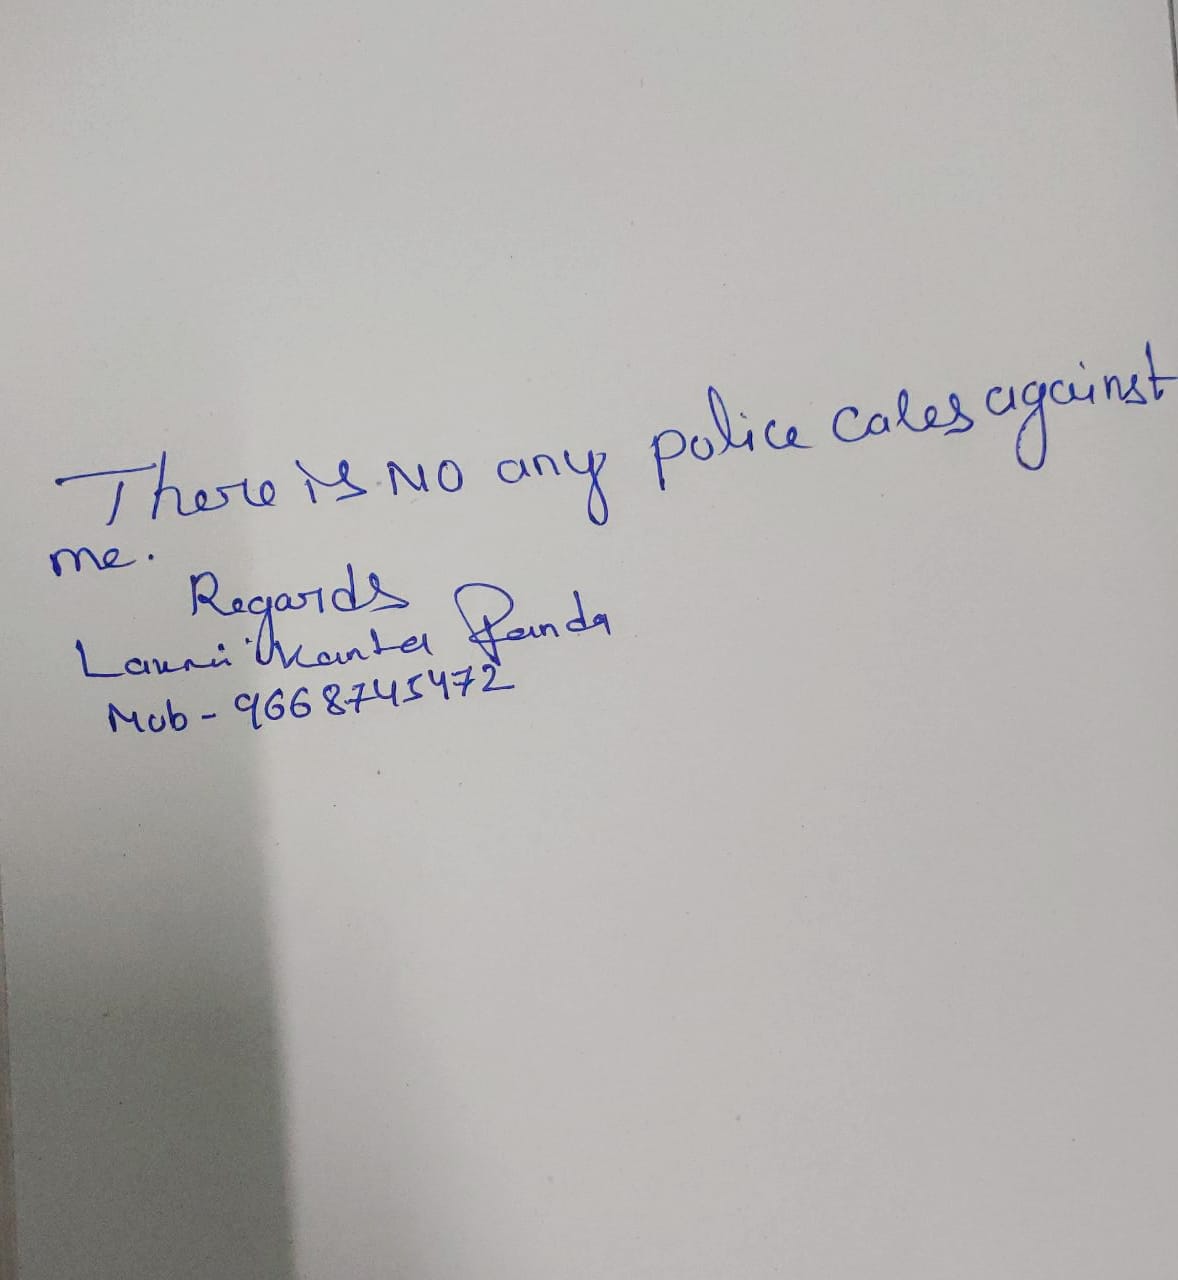 There is NO any police cases against
me.
Regards
Laxmi Kanta Panda
Mob - 9668745472